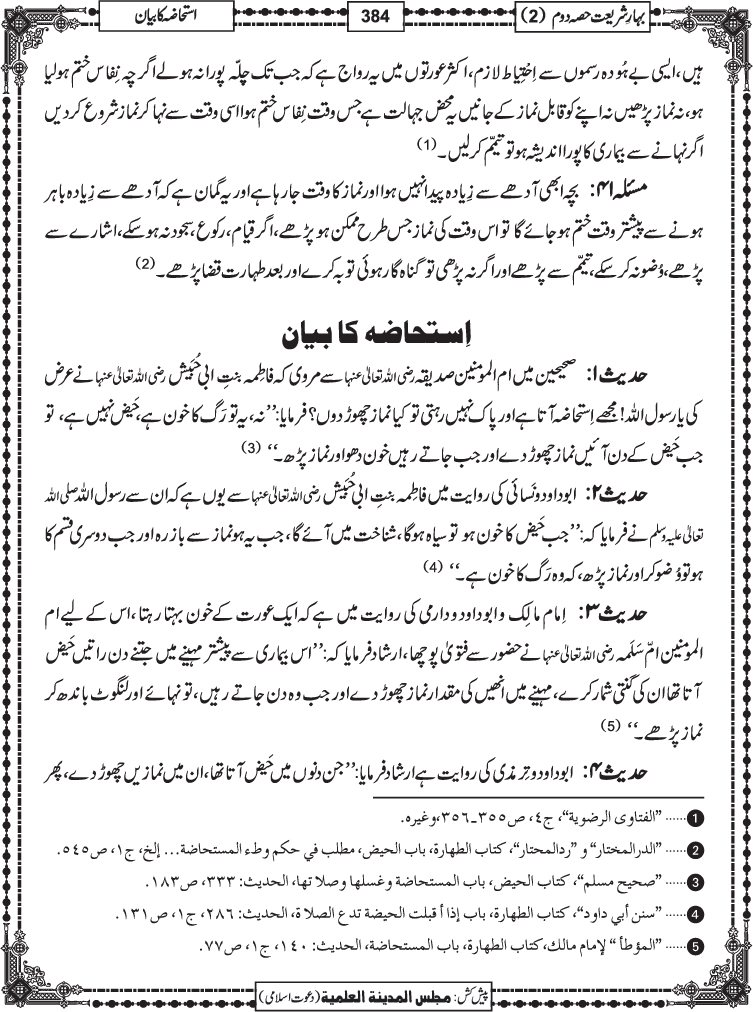 بہارِ شریعت حصہ دوم (2)
384
استحاضہ کا بیان
ہیں، ایسی بے ہُودہ رسموں سے اِحْتِیاط لازم، اکثر عورتوں میں یہ رواج ہے کہ جب تک چلّہ پورا نہ ہولے اگرچہ نِفاس ختم ہولیا
ہو، نہ نماز پڑھیں نہ اپنے کو قابل نماز کے جانیں یہ محض جہالت ہے جس وقت نِفاس ختم ہوا اسی وقت سے نہا کر نماز شروع کردیں
اگر نہانے سے بیماری کا پورا اندیشہ ہو تو تیمّم کرلیں۔ (1)
مسئلہ ۴۱: بچہ ابھی آدھے سے زِیادہ پیدا نہیں ہوا اور نماز کا وقت جا رہا ہے اور یہ گمان ہے کہ آدھے سے زِیادہ باہر
ہونے سے پیشتر وقت ختم ہو جائے گا تو اس وقت کی نماز جس طرح ممکن ہو پڑھے، اگر قیام، رکوع، سجود نہ ہو سکے، اشارے سے
پڑھے، وُضو نہ کرسکے، تیمّم سے پڑھے اور اگر نہ پڑھی تو گناہ گار ہوئی توبہ کرے اور بعد طہارت قضا پڑھے۔ (2)
اِستحاضہ کا بیان
حدیث ۱: صحیحین میں ام المومنین صدیقہ رضی اللہ تعالیٰ عنہا سے مروی کہ فاطمہ بنتِ ابی حُبَیش رضی اللہ تعالیٰ عنہا نے عرض
کی یا رسول اللہ! مجھے اِستحاضہ آتا ہے اور پاک نہیں رہتی تو کیا نماز چھوڑ دوں؟ فرمایا: ’’نہ، یہ تو رَگ کا خون ہے، حَیض نہیں ہے، تو
جب حَیض کے دن آئیں نماز چھوڑ دے اور جب جاتے رہیں خون دھو اور نماز پڑھ۔‘‘ (3)
حدیث ۲: ابوداود و نَسائی کی روایت میں فاطِمہ بنتِ ابی حُبَیش رضی اللہ تعالیٰ عنہا سے یوں ہے کہ ان سے رسول اللہ صلی اللہ
تعالیٰ علیہ وسلم نے فرمایا کہ: ’’جب حَیض کا خون ہو تو سیاہ ہوگا، شناخت میں آئے گا، جب یہ ہو نماز سے باز رہ اور جب دوسری قسم کا
ہو تو وُضو کر اور نماز پڑھ، کہ وہ رَگ کا خون ہے۔‘‘ (4)
حدیث ۳: اِمام مالِک و ابوداود و دارمی کی روایت میں ہے کہ ایک عورت کے خون بہتا رہتا، اس کے لیے ام
المومنین امّ سَلَمہ رضی اللہ تعالیٰ عنہا نے حضور سے فتویٰ پوچھا، ارشاد فرمایا کہ: ’’اس بیماری سے پیشتر مہینے میں جتنے دن راتیں حَیض
آتا تھا ان کی گنتی شمار کرے، مہینے میں انھیں کی مقدار نماز چھوڑ دے اور جب وہ دن جاتے رہیں، تو نہائے اور لنگوٹ باندھ کر
نماز پڑھے۔‘‘ (5)
حدیث ۴: ابوداود و تِرمذی کی روایت ہے ارشاد فرمایا: ’’جن دنوں میں حَیض آتا تھا، ان میں نمازیں چھوڑ دے، پھر
1 ...... ’’الفتاوی الرضویة‘‘، ج٤، ص٣٥٥۔٣٥٦، وغیرہ.
2 ...... ’’الدرالمختار‘‘ و ’’ردالمحتار‘‘، کتاب الطھارة، باب الحیض، مطلب في حکم وطء المستحاضة... إلخ، ج١، ص٥٤٥.
3 ...... ’’صحیح مسلم‘‘، کتاب الحیض، باب المستحاضة وغسلھا وصلاتھا، الحدیث: ٣٣٣، ص١٨٣.
4 ...... ’’سنن أبي داود‘‘، کتاب الطھارة، باب إذا أقبلت الحیضة تدع الصلاة، الحدیث: ٢٨٦، ج١، ص١٣١.
5 ...... ’’المؤطأ‘‘ لإمام مالك، کتاب الطھارة، باب المستحاضة، الحدیث: ١٤٠، ج١، ص٧٧.
پیش کش: مجلس المدینة العلمیة (دعوتِ اسلامی)